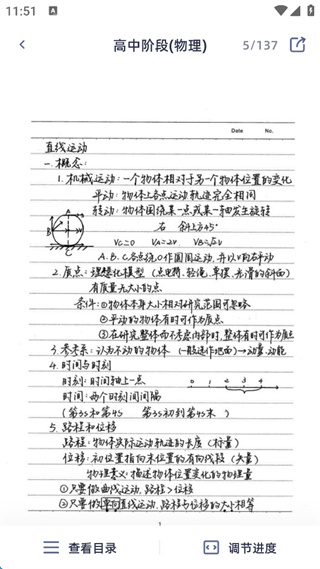 11:51
高中阶段(物理)
5/137
Date No.
直线运动
一.概念:
1.机械运动:一个物体相对于另一个物体位置的变化
平动:物体上各点运动轨迹完全相同
转动:物体围绕某一点或某一轴发生旋转
右 斜上方45°
A
B
C
Vc=0 VA=2V VB=√2V
A.B.C各点绕O作圆周运动,并以V向右平动
2.质点:理想化模型(点电荷、轻绳、单摆、光滑的斜面)
有质量无大小的点
条件:①物体本身大小相对研究范围可忽略
②平动的物体有时可作为质点
③在研究整体而不考虑内部时,整体有时可作质点
3.参考系:认为不动的物体(一般选作地面)→动量.动能
4.时间与时刻
时刻:时间轴上一点
0 1 2 3 4
时间:两个时刻间间隔
(第3s和第4s 第3s初到第4s末)
5.路程和位移
路程:物体实际运动轨迹的长度(标量)
位移:初位置指向末位置的有向线段(矢量)
物理意义:描述物体位置变化的物理量
①只要做曲线运动,路程>位移
②只要做单向直线运动,路程与位移的大小相等
1
查看目录
调节进度